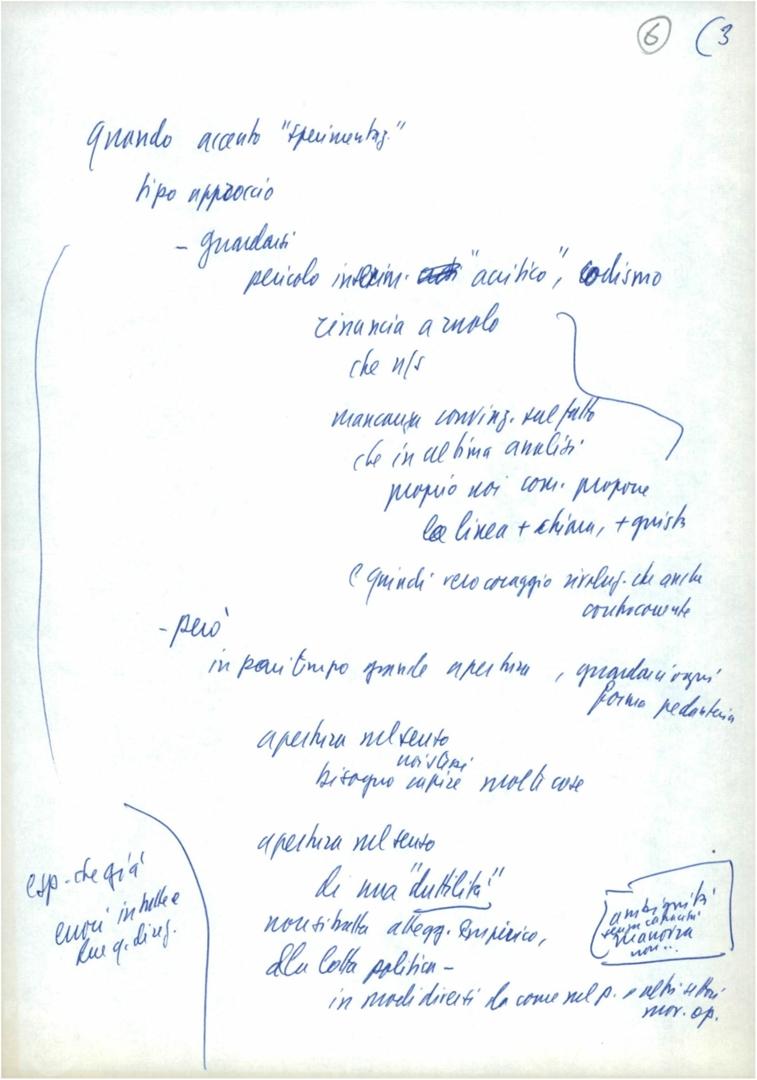 6 (3
quando accento "sperimentaz."
tipo approccio
- guardarsi
pericolo "acritico", codismo
rinuncia a ruolo
che n/s
mancanza convinz. sul fatto
che in ultima analisi
proprio noi com. propone
la linea + chiara, + giusta
e quindi vero coraggio rivoluz. che anche
controcorrente
- però
in pari tempo grande apertura, guardarci ogni
forma pedanteria
apertura nel senso
noi stessi
bisogno capire molte cose
apertura nel senso
di una "duttilità"
non si tratta attegg. empirico,
alla lotta politica -
in modi diversi da come nel p. e altri settori
mov. op.
esp. che già
errori in tutte e
due q. direz.
ambiguità
senza capacità
manovra
non...